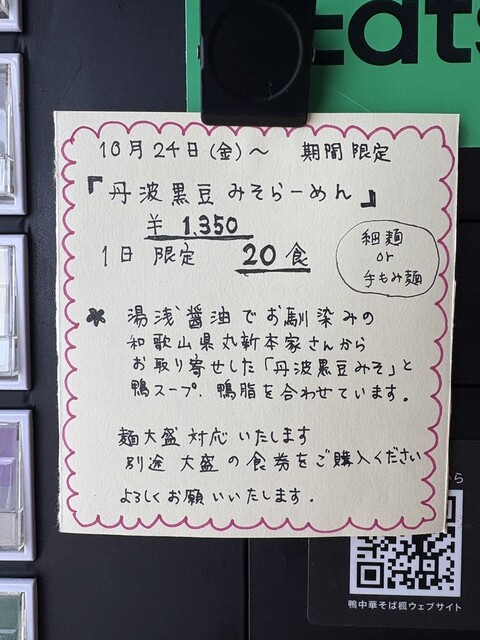 Eats
10月24日(金)～ 期間限定
『丹波黒豆みそらーめん』
¥1,350
1日限定 20食
細麺
or
手もみ麺
* 湯浅醤油でお馴染みの
和歌山県丸新本家さんから
お取り寄せした「丹波黒豆みそ」と
鴨スープ、鴨脂を合わせています。
麺大盛対応いたします
別途 大盛の食券をご購入ください
よろしくお願いいたします。
から
鴨中華そば楓ウェブサイト